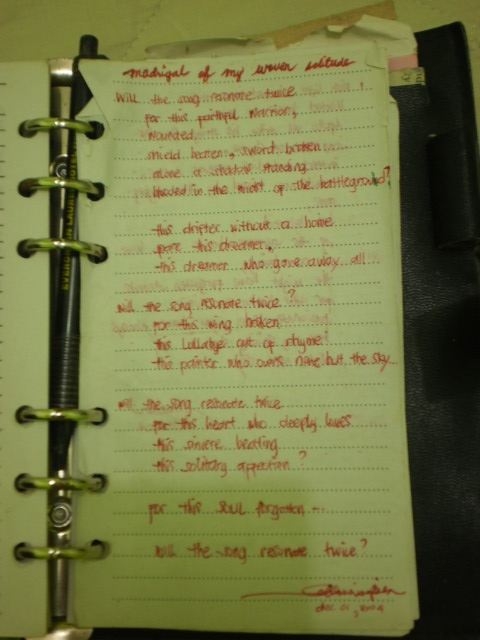 madrigal of my woven solitude
Will the song resonate twice
for this faithful warrior,
wounded
shield beaten, sword broken
alone a shadow standing
in the midst of the battleground?
this drifter without a home
spare this dreamer,
this dreamer who gave away all
will the song resonate twice?
for this wing broken
this lullabye out of rhyme
this painter who owns none but the sky...
will the song resonate twice
for this heart who deeply loves
this sincere beating
this solitary apparition?
for this soul forgotten...
Will the song resonate twice?
dec 01, 2004